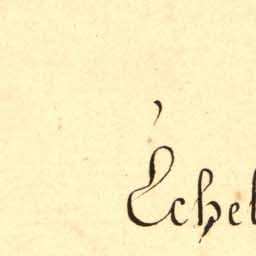 Échel